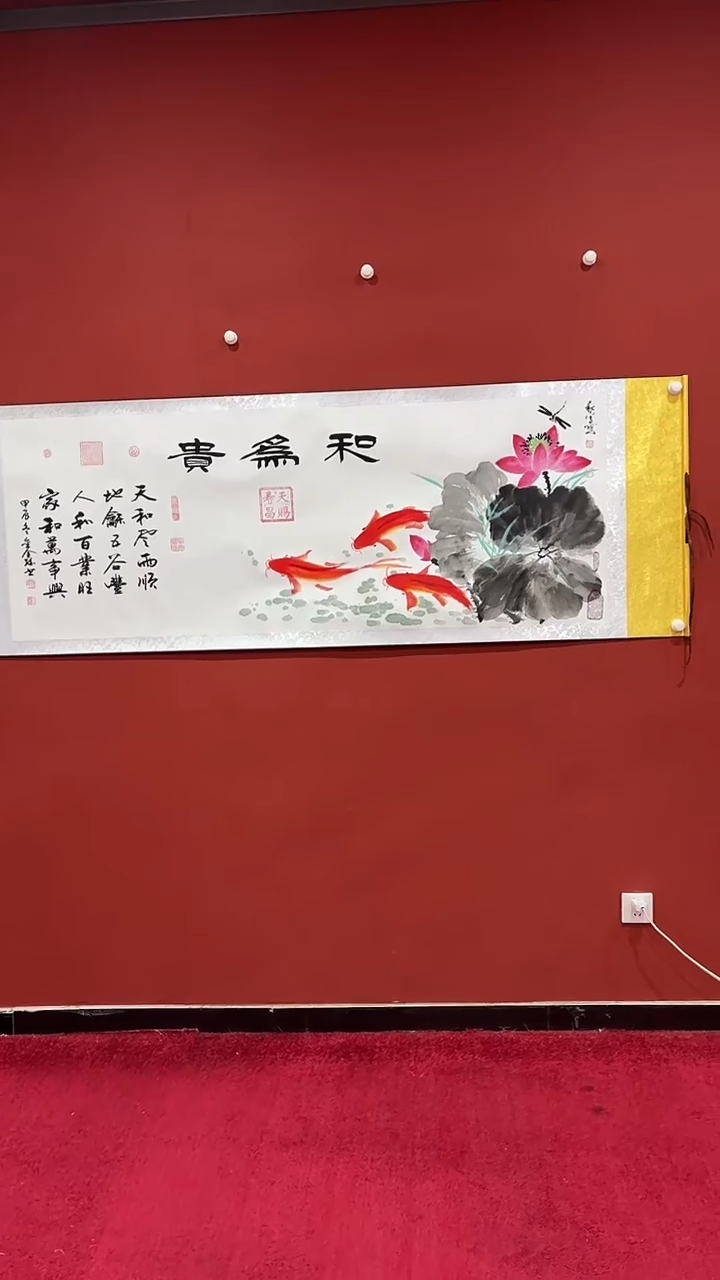 和為貴
天賜
壽昌
天和風雨順
地龢五谷豐
人和百業旺
家和萬事興